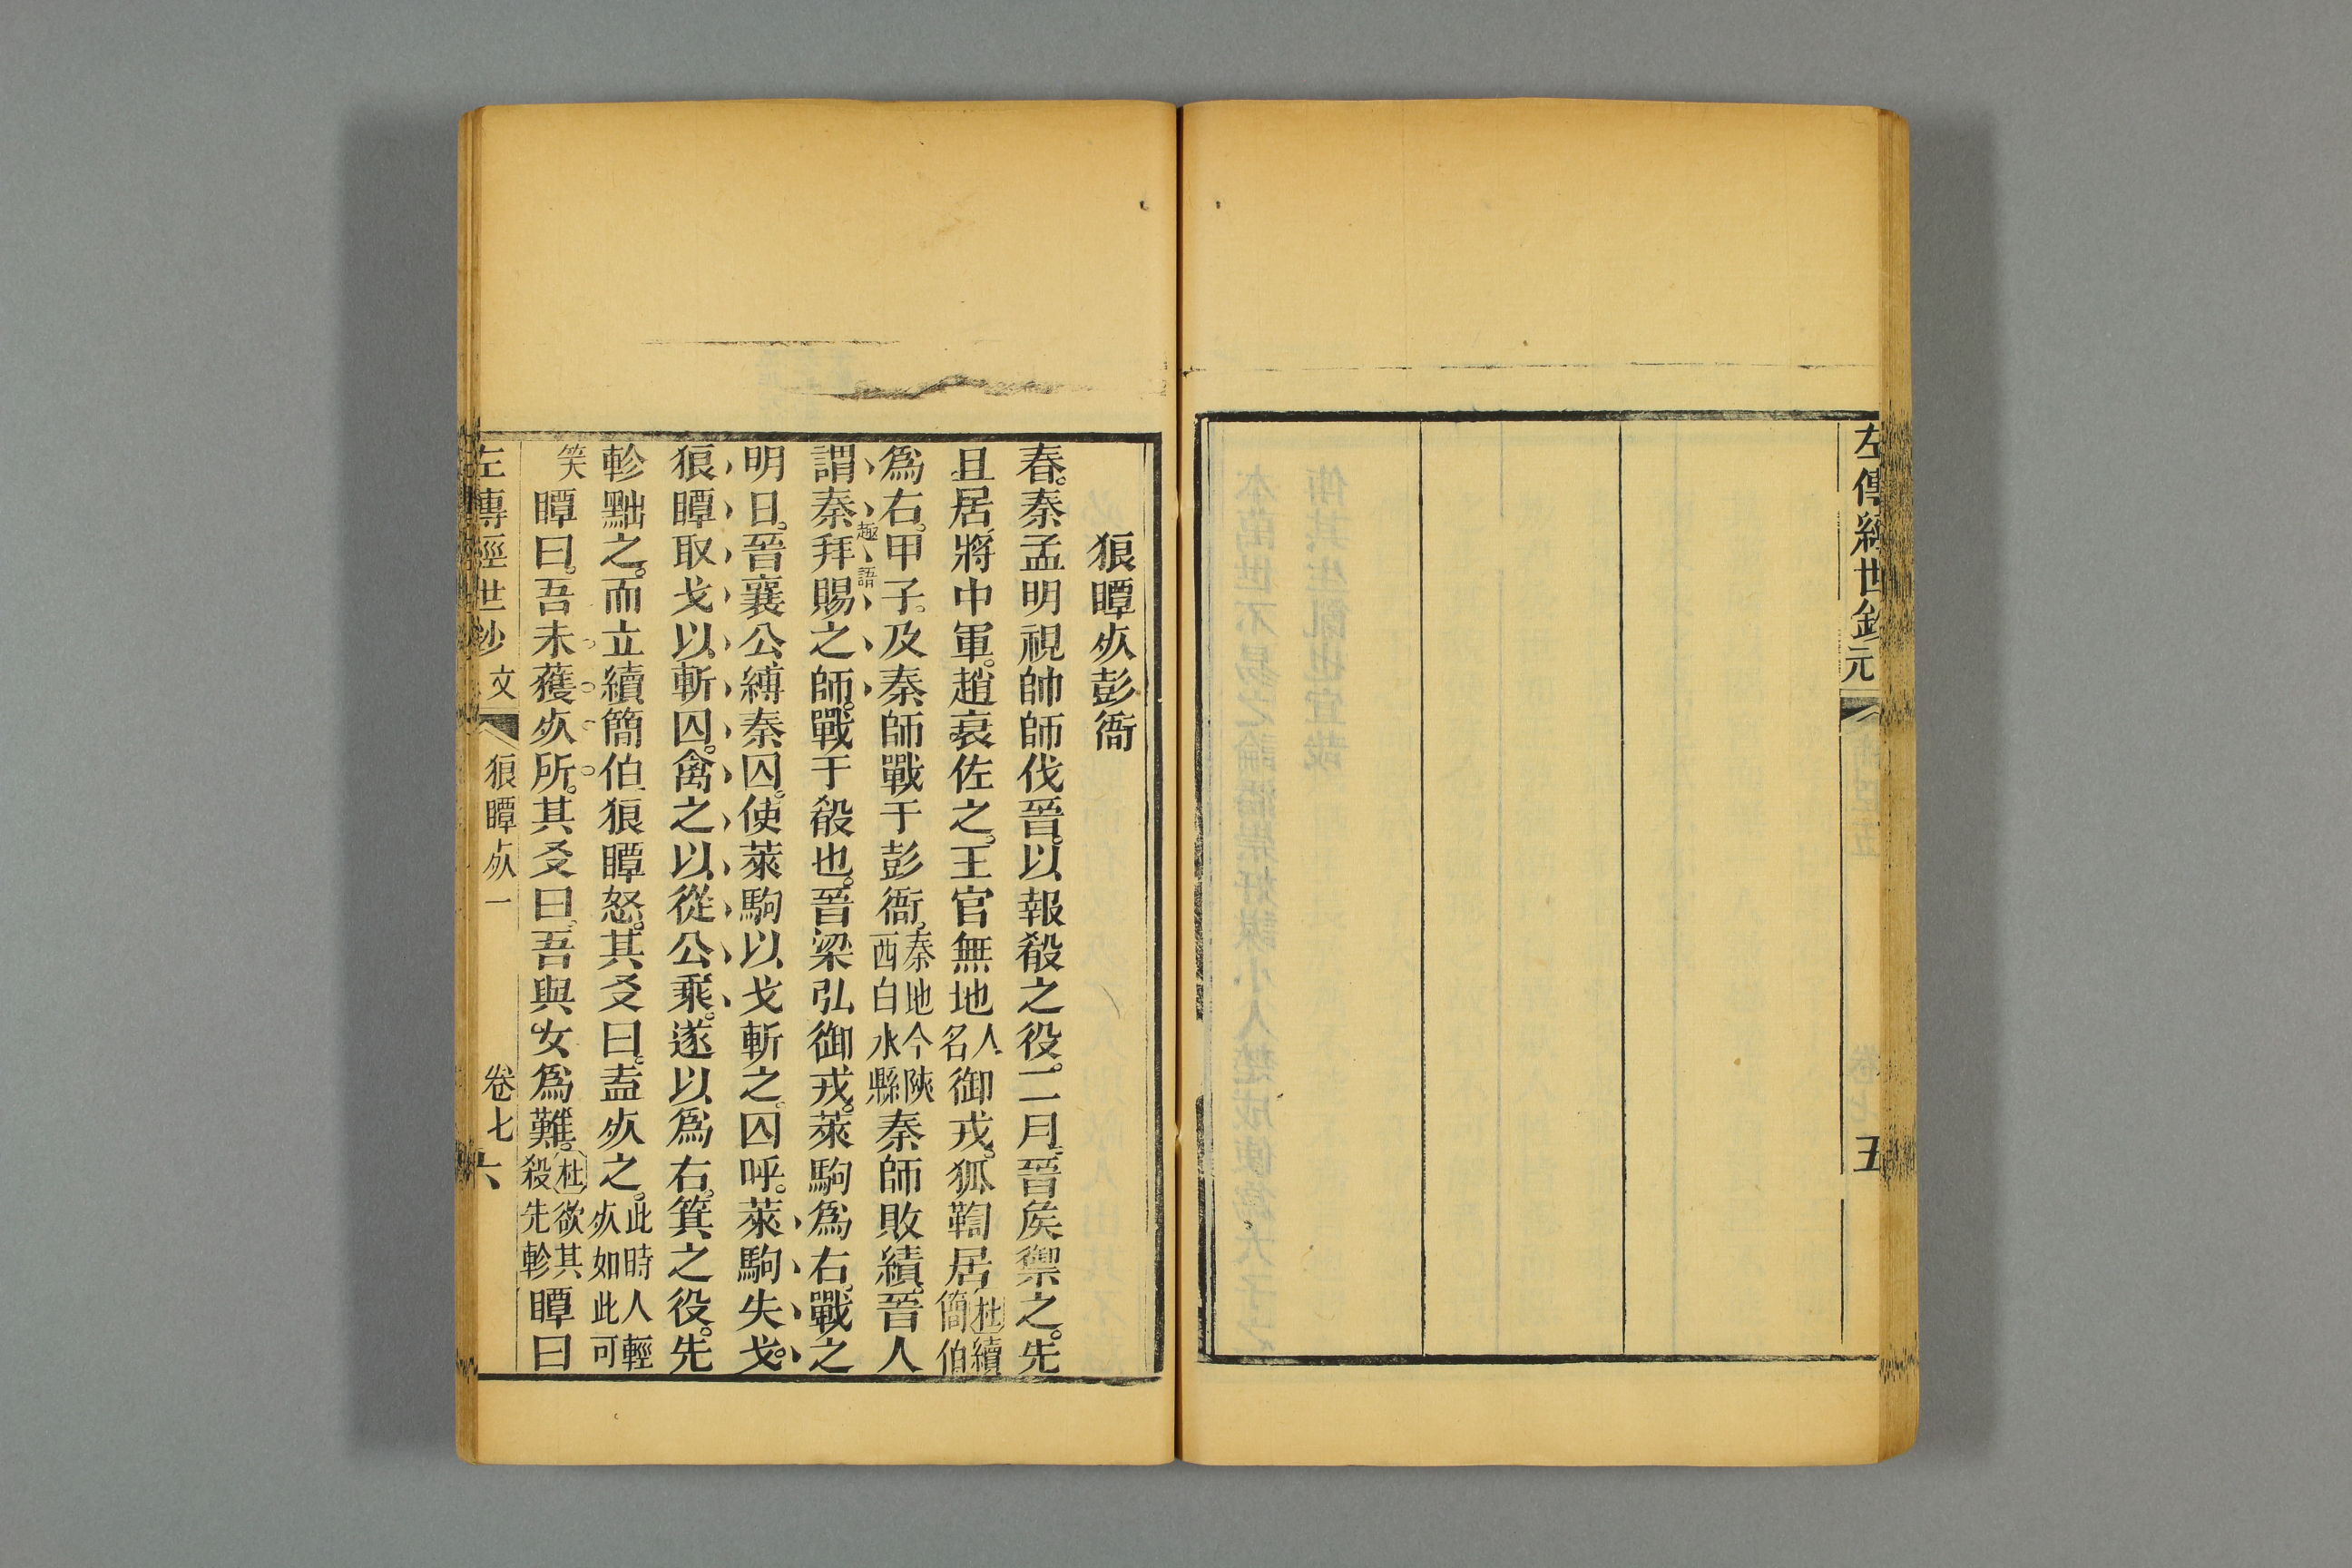 左傳經世鈔 元
五
狼瞫㱙彭衙
春。秦孟明視帥師伐晉。以報殽之役。二月。晉矦禦之。先
且居將中軍。趙衰佐之。王官無地人名御戎。狐鞫居杜續簡伯
爲右。甲子。及秦師戰于彭衙。秦地今陝西白水縣秦師敗績。晉人
趣語
謂秦拜賜之師。戰于殽也。晉梁弘御戎。萊駒爲右。戰之
明日。晉襄公縛秦囚。使萊駒以戈斬之。囚呼。萊駒失戈。
狼瞫取戈以斬囚。禽之以從公乘。遂以爲右。箕之役。先
軫黜之。而立續簡伯。狼瞫怒。其友曰。盍㱙之。此時人輕㱙如此可
笑瞫曰。吾未獲㱙所。其友曰。吾與女爲難。杜欲其殺先軫瞫曰
左傳經世鈔 文 狼瞫㱙一 卷七 六